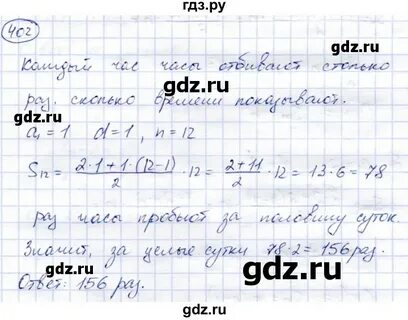 гдз.ру
402
gdz.ru gdz.ru
Каждый час часы отбивают столько
раз, сколько времени показывают.
a₁ = 1 d = 1, n = 12
S₁₂ = (2·1+1·(12-1))/2 · 12 = (2+11)/2 · 12 = 13·6 = 78
gdz.ru gdz.ru
раз часы пробьют за половину суток.
Значит, за целые сутки 78·2 = 156 раз.
Ответ: 156 раз.
gdz.ru gdz.ru